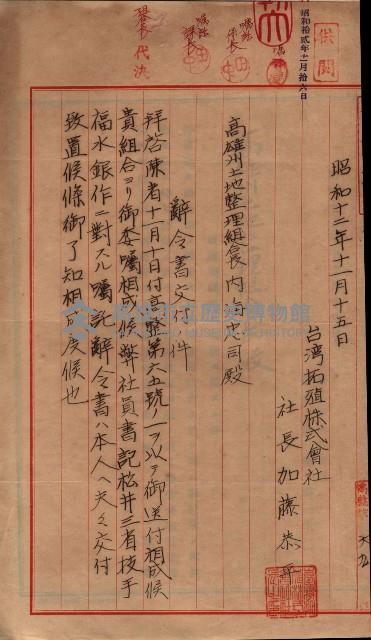 昭和拾貳年十一月拾六日
供閲
代決
昭和十二年十一月十五日
台湾拓殖株式會社
社長加藤恭平
高雄州土地整理組合長内海忠司殿
辭令書交付ノ件
拜啓陳者十一月十日付高整第六五號ノ一ヲ以テ御送付相成候
貴組合ヨリ御委囑相成候弊社員書記松井三省技手
福水銀作ニ對スル囑託辭令書ハ本人ヘ夫々交付
致置候條御了知相成度候也
高雄市立歷史博物館